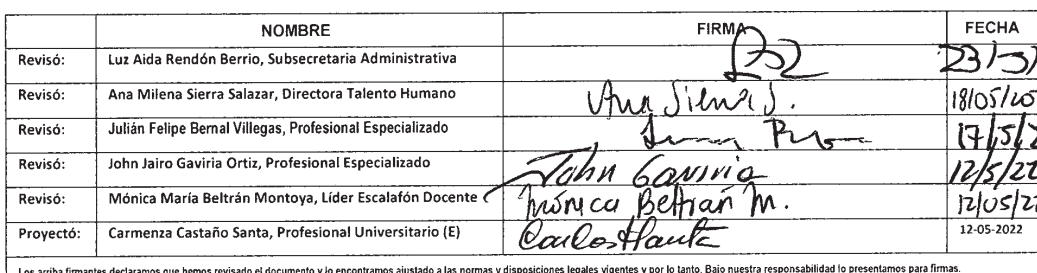 NOMBRE FIRMA FECHA
Revisó: Luz Aida Rendón Berrio, Subsecretaria Administrativa
Revisó: Ana Milena Sierra Salazar, Directora Talento Humano Ana Sierra S. 18/05/20
Revisó: Julián Felipe Bernal Villegas, Profesional Especializado 17/5/2
Revisó: John Jairo Gaviria Ortiz, Profesional Especializado John Gaviria 12/5/22
Revisó: Mónica María Beltrán Montoya, Líder Escalafón Docente Mónica Beltrán M. 12/05/22
Proyectó: Carmenza Castaño Santa, Profesional Universitario (E) 12-05-2022
Los arriba firmantes declaramos que hemos revisado el documento y lo encontramos ajustado a las normas y disposiciones legales vigentes y por lo tanto. Bajo nuestra responsabilidad lo presentamos para firmas.